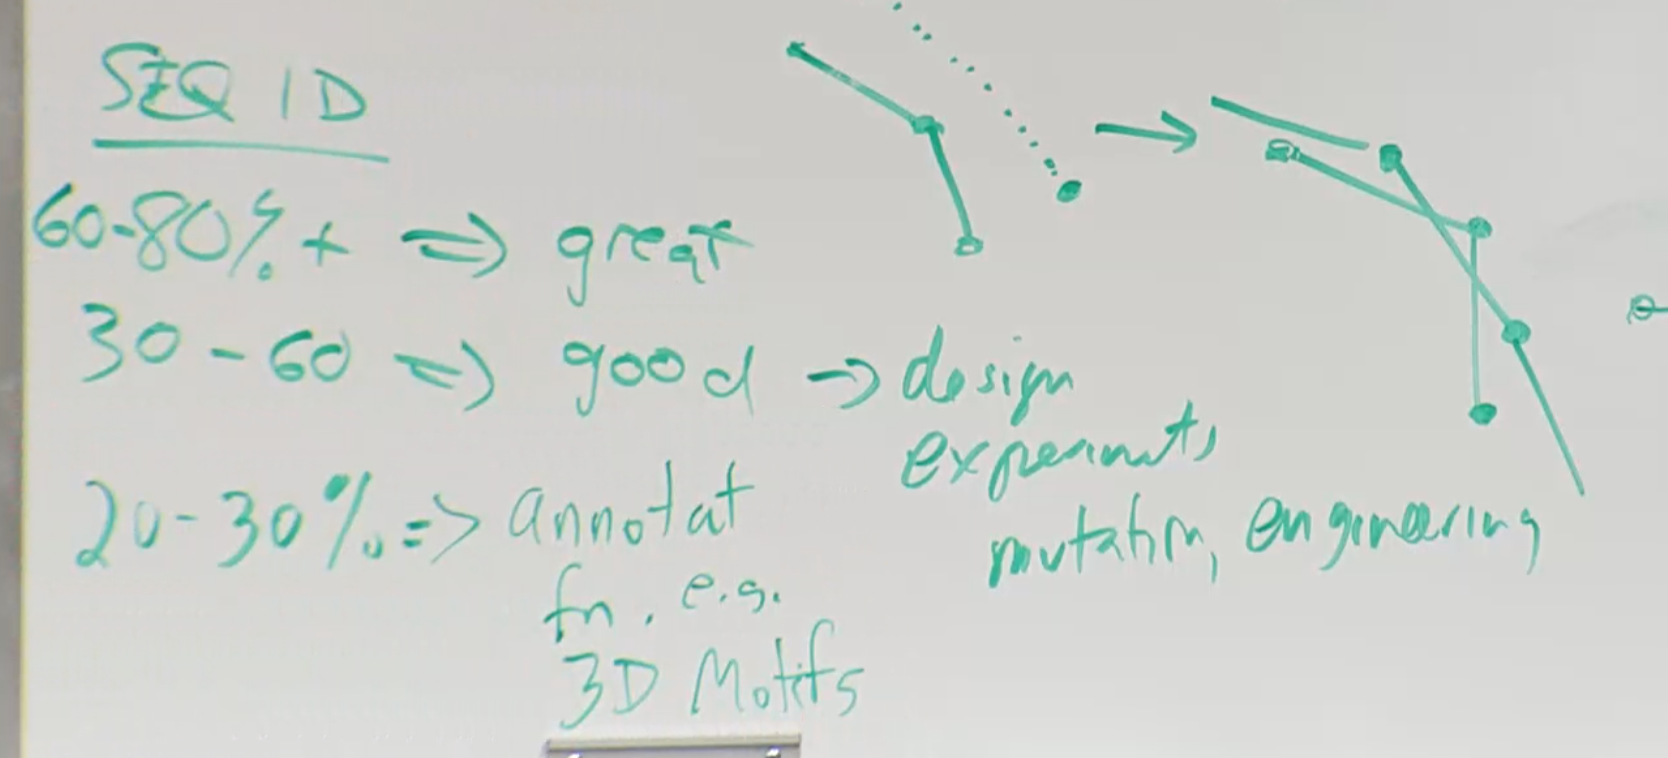 SEQ ID
60-80%+ => great
30-60 => good -> design
experiments
mutation, engineering
20-30% => annotat
fn, e.g.
3D Motifs